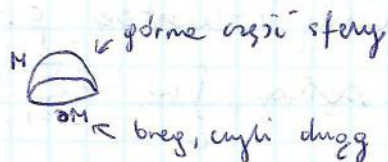 górna część sfery
M
∂M
brzeg, czyli okrąg